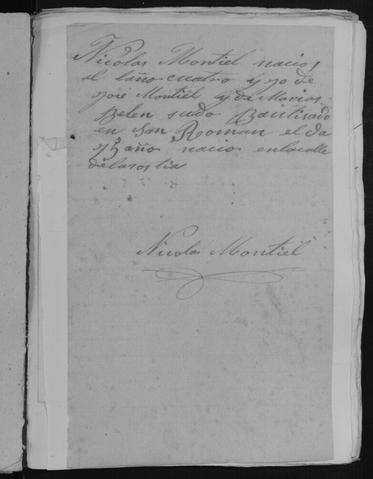 Nicolas Montiel nacio
el año cuatro y yo de
José Montiel y de Maria
Belen Bautisado
en San Roman el dia
y año nacio en la calle
de
Nicolas Montiel